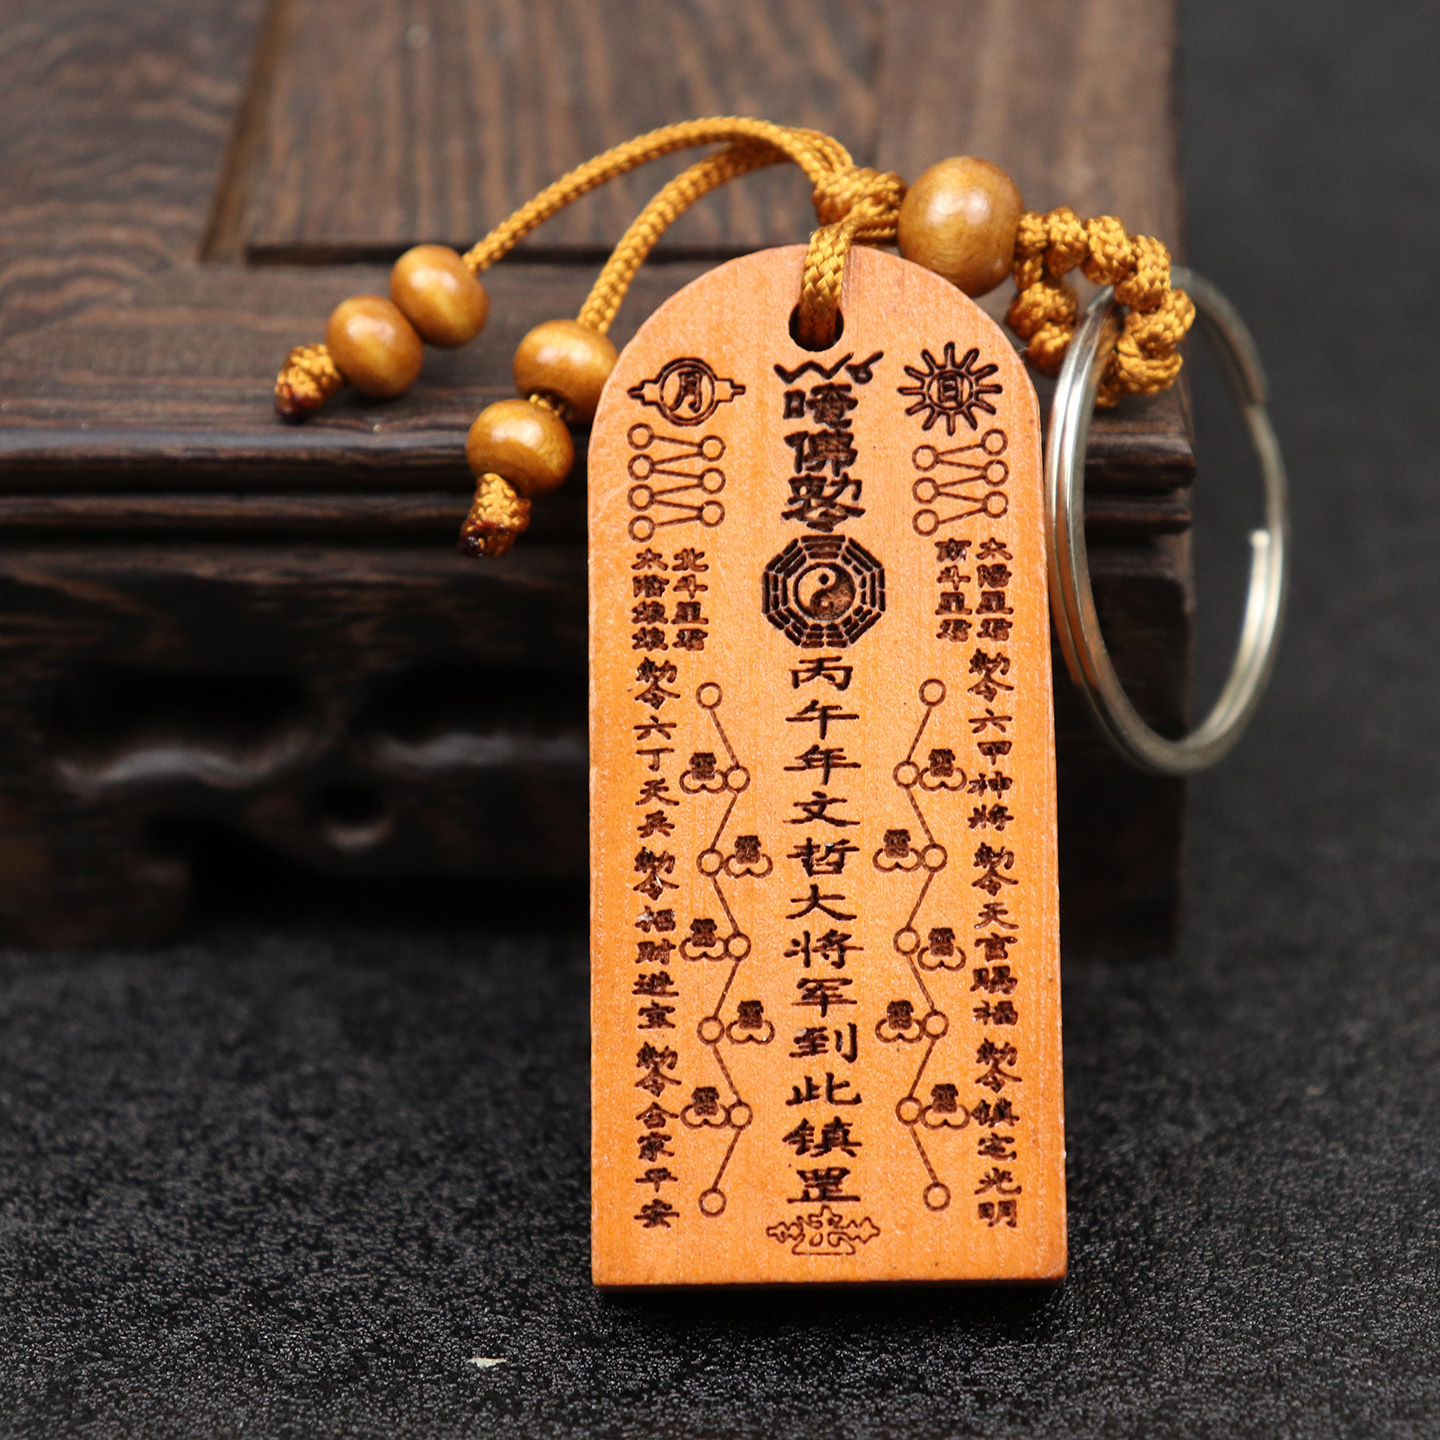 日
太陽星君
南斗星君
勅令六甲神將
勅令天官賜福
勅令镇宅光明
唵佛勅令
丙午年文哲大将军到此镇罡
月
北斗星君
太陰娘娘
勅令六丁天兵
勅令招財進宝
勅令合家平安